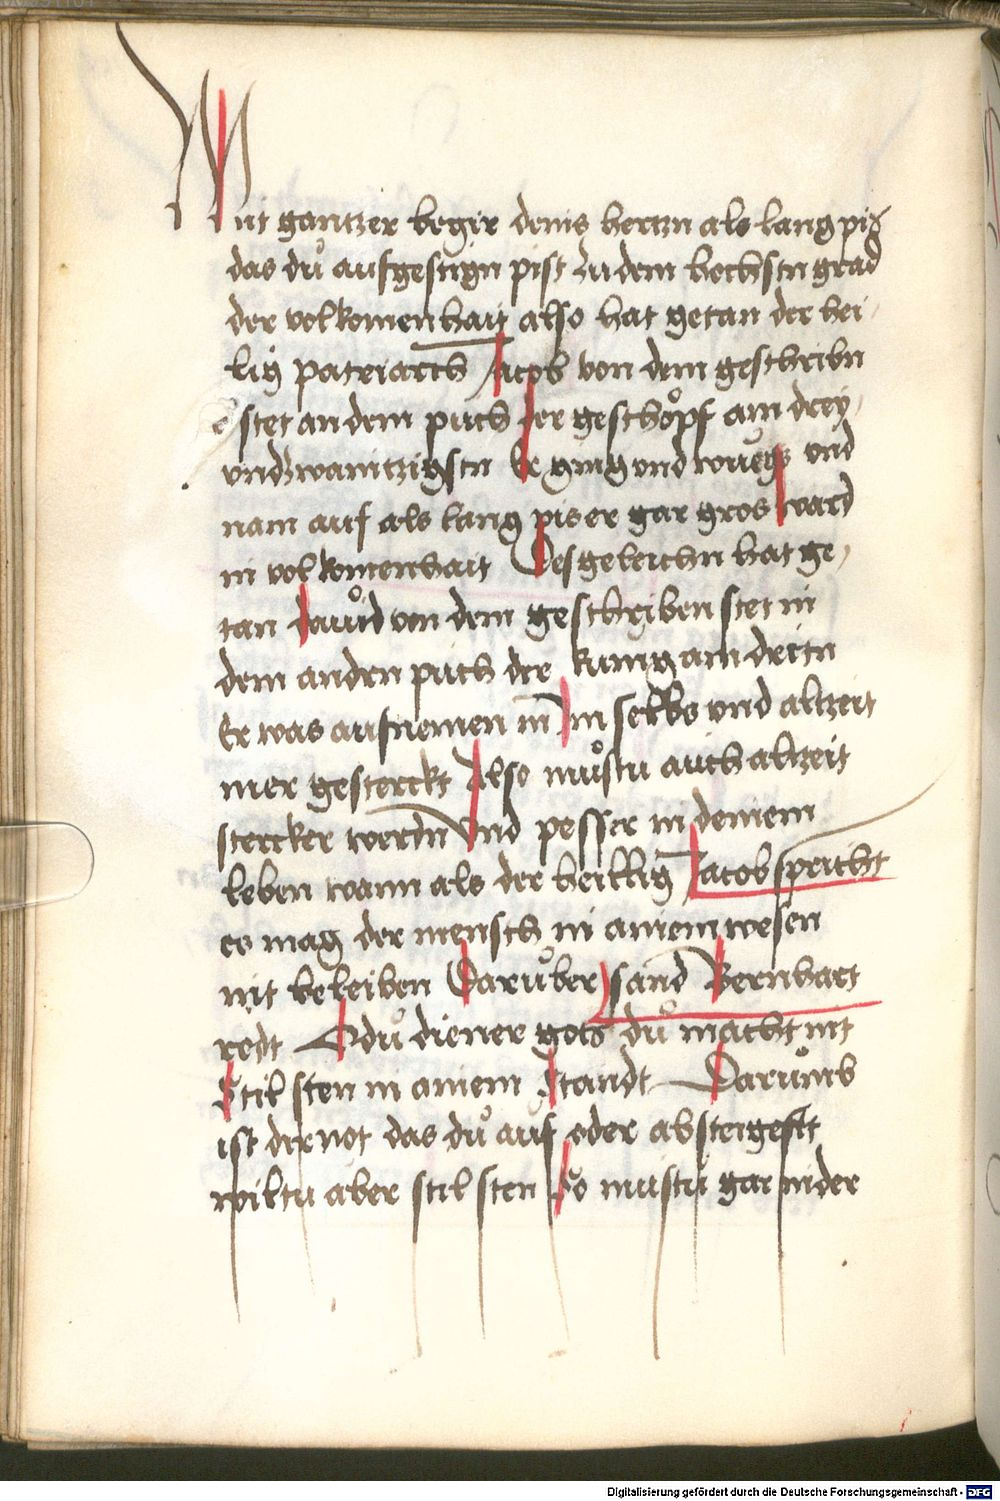 Mit gantzer begir deins hertzn als lang pis
das dů aufgestign pist zu dem hochstn grad
der volkomenhait also hat getan der hei
lig patriarch Jacob von dem geschribn
stet an dem puch der geschöpf am drey
vndzwaintzigstn Er ging vnd wuegs vnd
nam auf als lang pis er gar gros ward
in volkomenhait Desgeleichn hat ge
tan dauid von dem geschriben stet in
dem andrn puch der kunig am dritn
Er was aufnemen in im selbs vnd altzeit
mer gesterckt Also můstu auch altzeit
stercker werdn Vnd pesser in deinem
leben wann als der heillig Jacob spricht
es mag der mensch in ainem wesen
nit beleiben Darüber sand Bernhart
redt O dů diener gots dů macht nit
Stil sten in ainem Standt Darumb
ist dir not das dů auf oder absteigest
wiltu aber stil sten So mustu gar nider
Digitalisierung gefördert durch die Deutsche Forschungsgemeinschaft - DFG